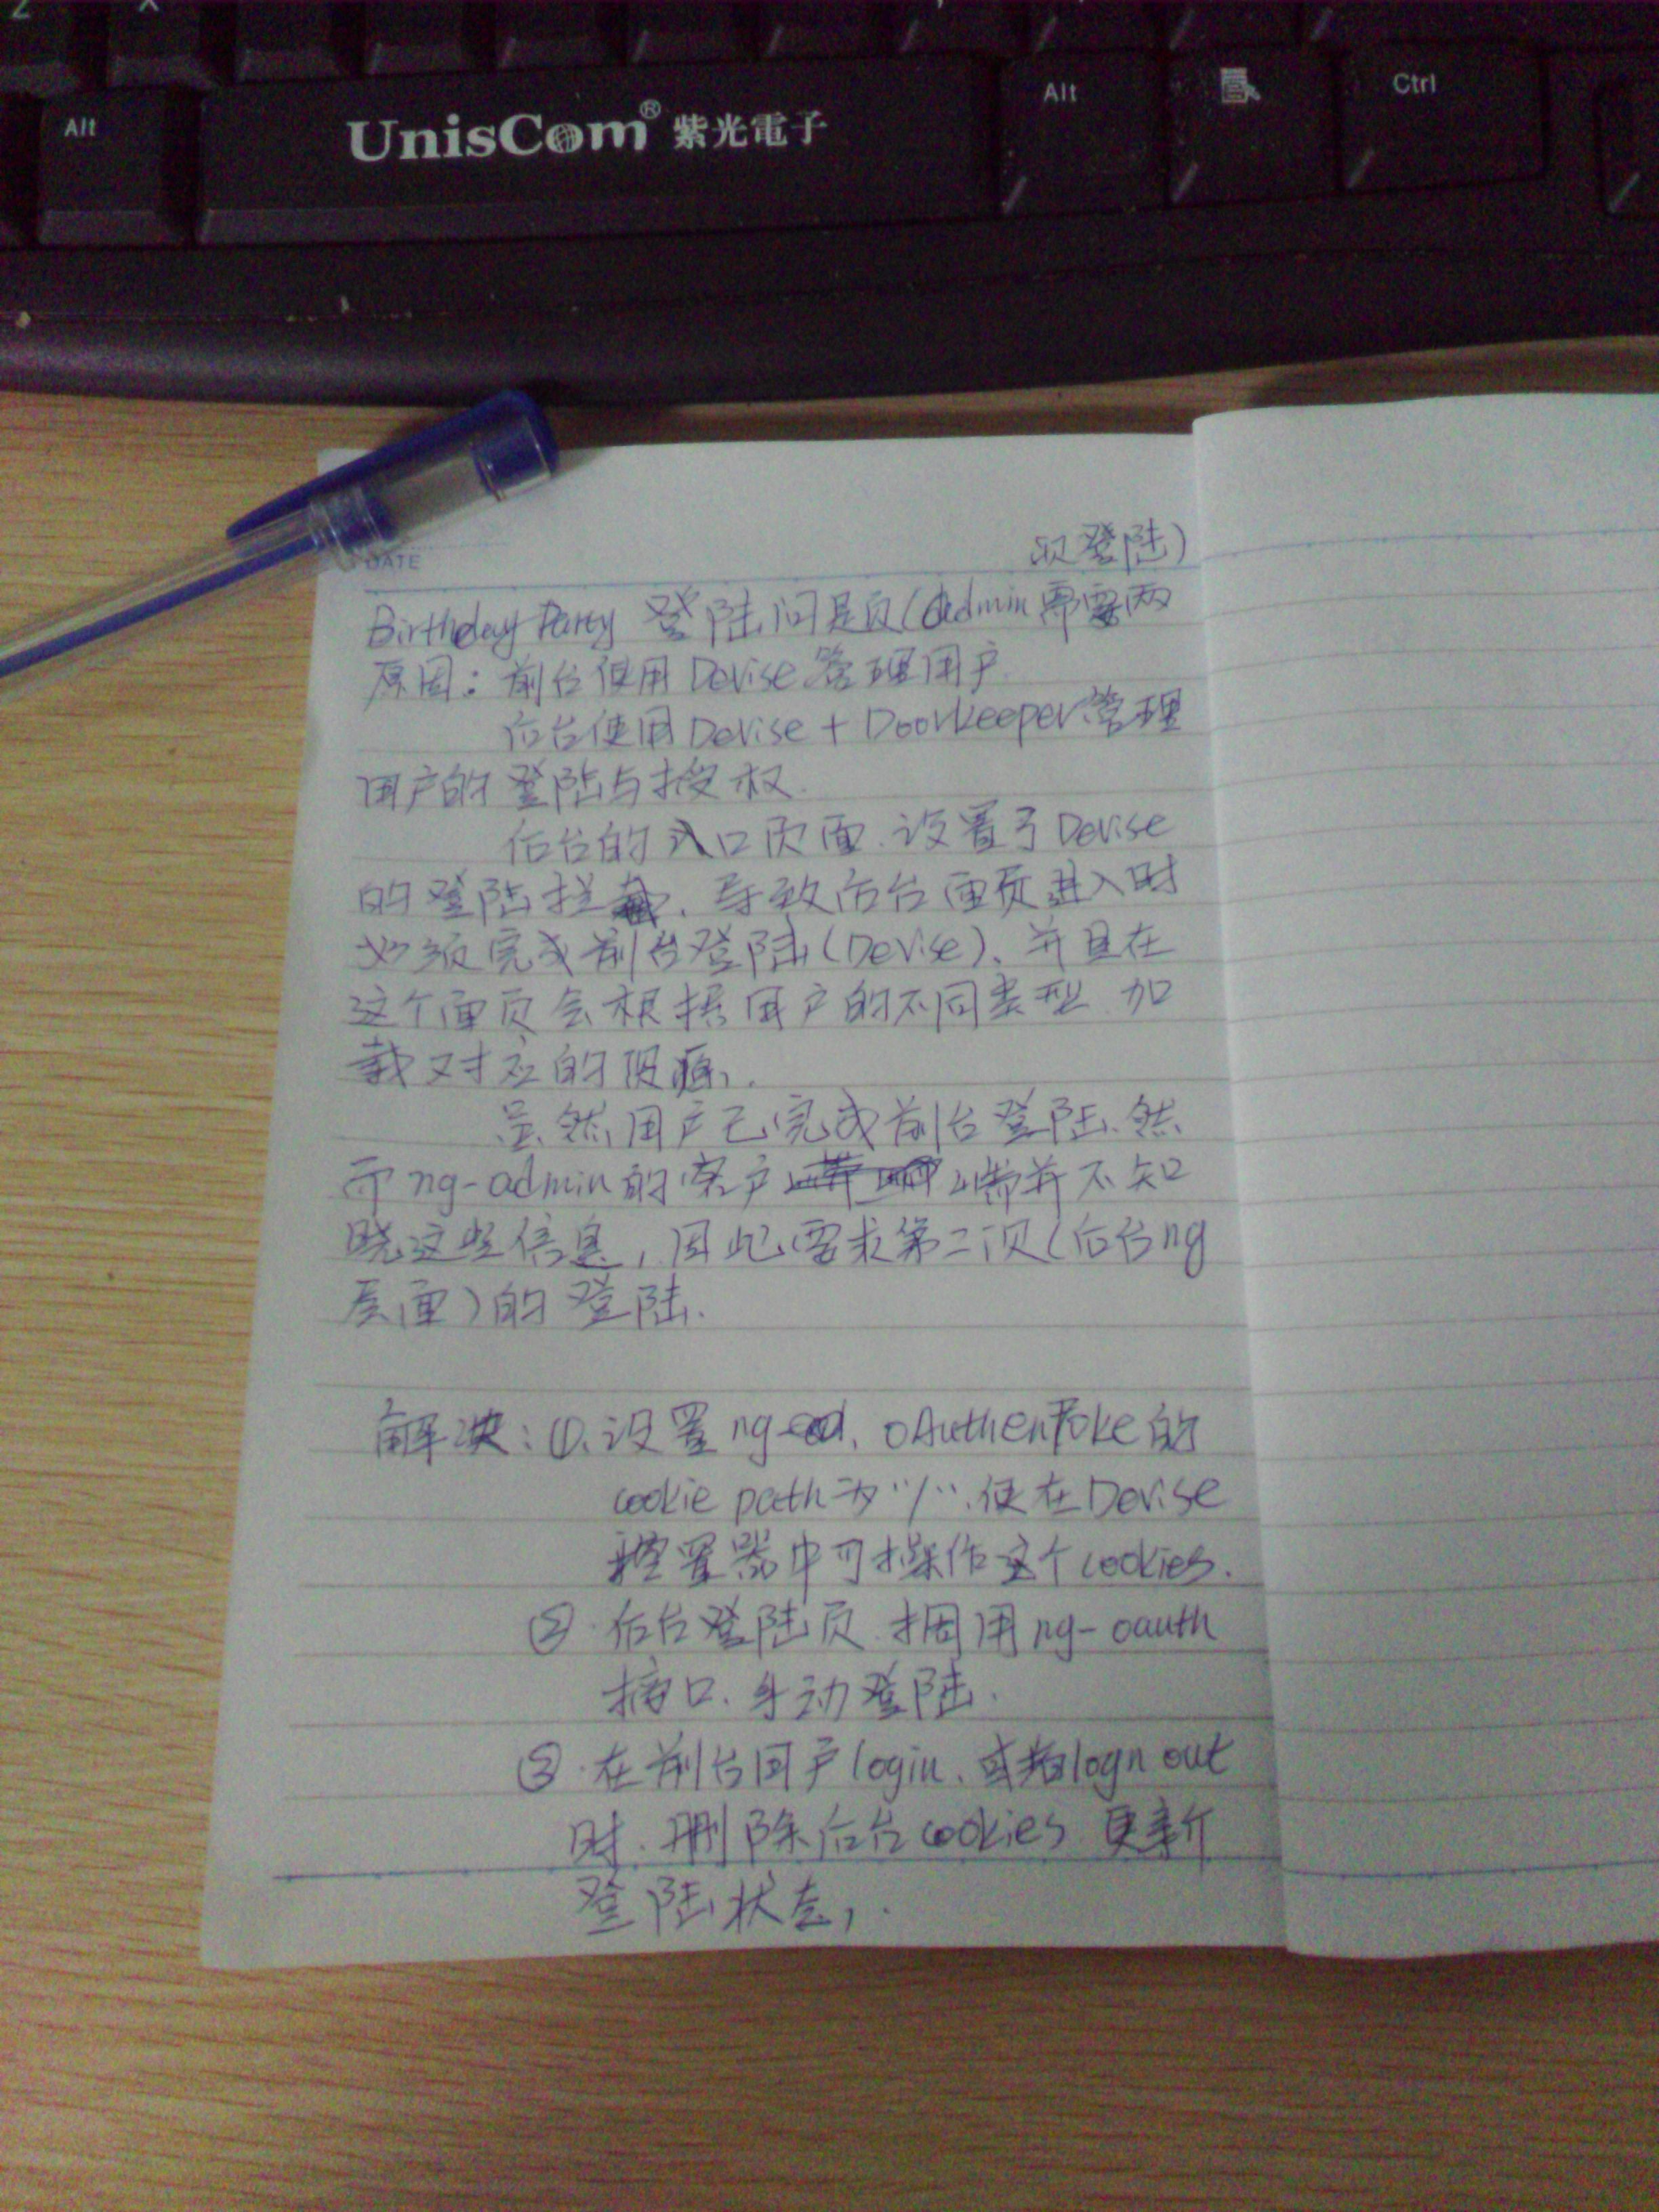 Z X
Alt
UnisCom® 紫光電子
Alt
Ctrl
DATE
次登陆)
Birthday Party 登陆问题(admin需要两
原因: 前台使用Devise管理用户.
后台使用Devise + Doorkeeper管理
用户的登陆与授权.
后台的入口页面.设置了Devise
的登陆拦截. 导致后台面页进入时
必须完成前台登陆(Devise)、并且在
这个面页会根据用户的不同类型 加
载对应的资源,.
虽然用户已完成前台登陆、然
而ng-admin的客户端并不知
晓这些信息, 因此需求第二次(后台ng
层面)的登陆.
解决: ①、设置ng- oAuthenToke的
cookie path为"/"、使在Devise
控置器中可操作这个cookies.
②. 后台登陆页 调用ng-oauth
接口、自动登陆.
③. 在前台用户login、或者logn out
时. 删除后台cookies 更新
登陆状态,.